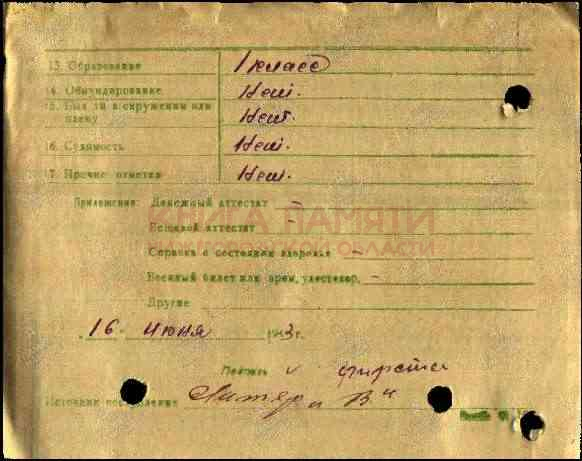 13. Образование 1 класс
14. Обмундирование Нет.
15. Был ли в окружении или плену Нет.
16. Судимость Нет.
17. Прочие отметки Нет.
Приложения: Денежный аттестат —
КНИГА ПАМЯТИ
Вещевой аттестат —
НИЖЕГОРОДСКОЙ ОБЛАСТИ
Справка о состоянии здоровья —
Военный билет или врем. удостовер. —
Другие
16 июня 1943 г.
Подпись и
В"